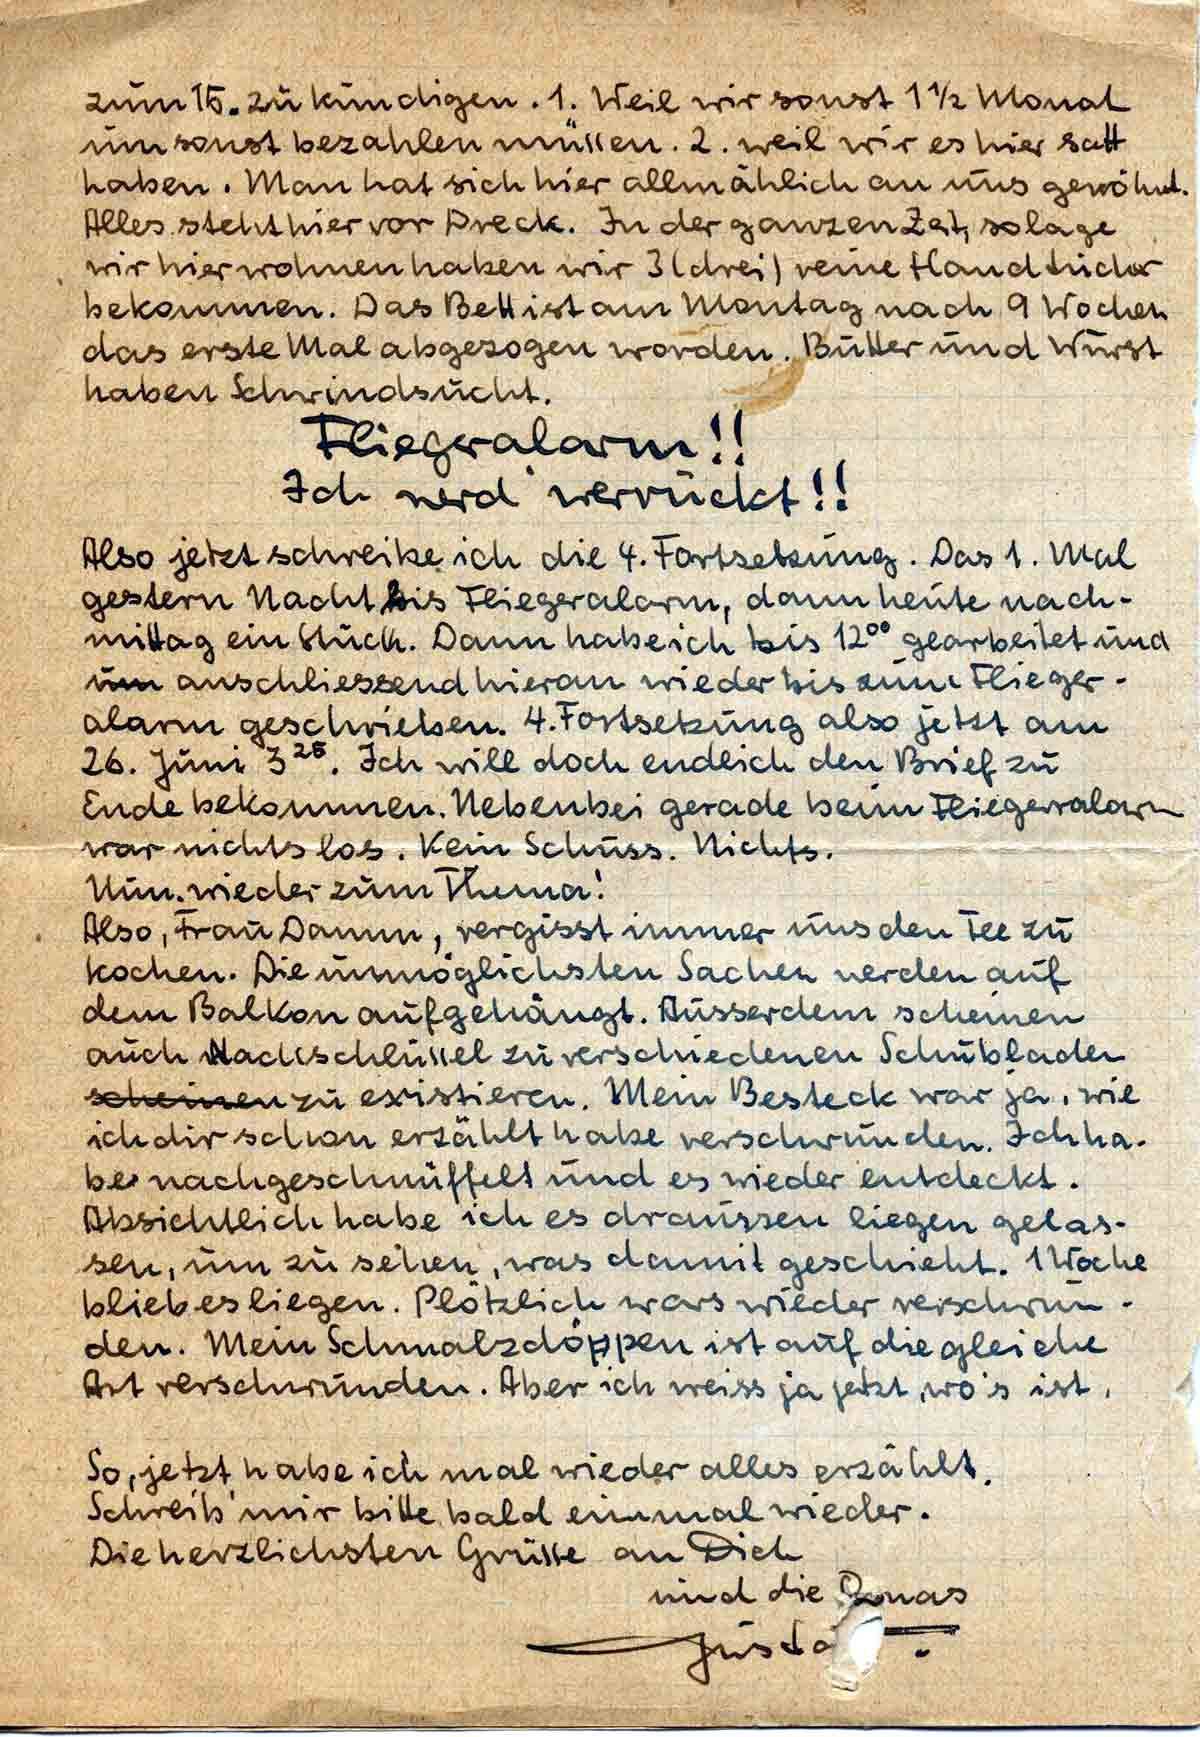 zum 15. zu kündigen. 1. Weil wir sonst 1 ½ Monat
umsonst bezahlen müssen. 2. weil wir es hier satt
haben. Man hat sich hier allmählich an uns gewöhnt.
Alles steht hier vor Dreck. In der ganzen Zeit, solage
wir hier wohnen haben wir 3 (drei) reine Handtücher
bekommen. Das Bett ist am Montag nach 9 Wochen
das erste Mal abgezogen worden. Butter und Wurst
haben Schwindsucht.
Fliegeralarm!!
Ich werd' verrückt!!
Also jetzt schreibe ich die 4. Fortsetzung. Das 1. Mal
gestern Nacht bis Fliegeralarm, dann heute nach-
mittag ein Stück. Dann habe ich bis 12⁰⁰ gearbeitet und
um anschliessend hieran wieder bis zum Flieger-
alarm geschrieben. 4. Fortsetzung also jetzt am
26. Juni 3²⁵. Ich will doch endlich den Brief zu
Ende bekommen. Nebenbei gerade beim Fliegeralarm
war nichts los. Kein Schuss. Nichts.
Nun wieder zum Thema!
Also, Frau Damm, vergisst immer uns den Tee zu
kochen. Die unmöglichsten Sachen werden auf
dem Balkon aufgehängt. Ausserdem scheinen
auch Nachschlüssel zu verschiedenen Schubladen
scheinen zu existieren. Mein Besteck war ja, wie
ich dir schon erzählt habe verschwunden. Ich ha-
be nachgeschnüffelt und es wieder entdeckt.
Absichtlich habe ich es draussen liegen gelas-
sen, um zu sehen, was damit geschieht. 1 Woche
blieb es liegen. Plötzlich wars wieder verschwun-
den. Mein Schmalzdöppen ist auf die gleiche
Art verschwunden. Aber ich weiss ja jetzt, wo's ist.
So, jetzt habe ich mal wieder alles erzählt.
Schreib' mir bitte bald einmal wieder.
Die herzlichsten Grüsse an Dich
und die